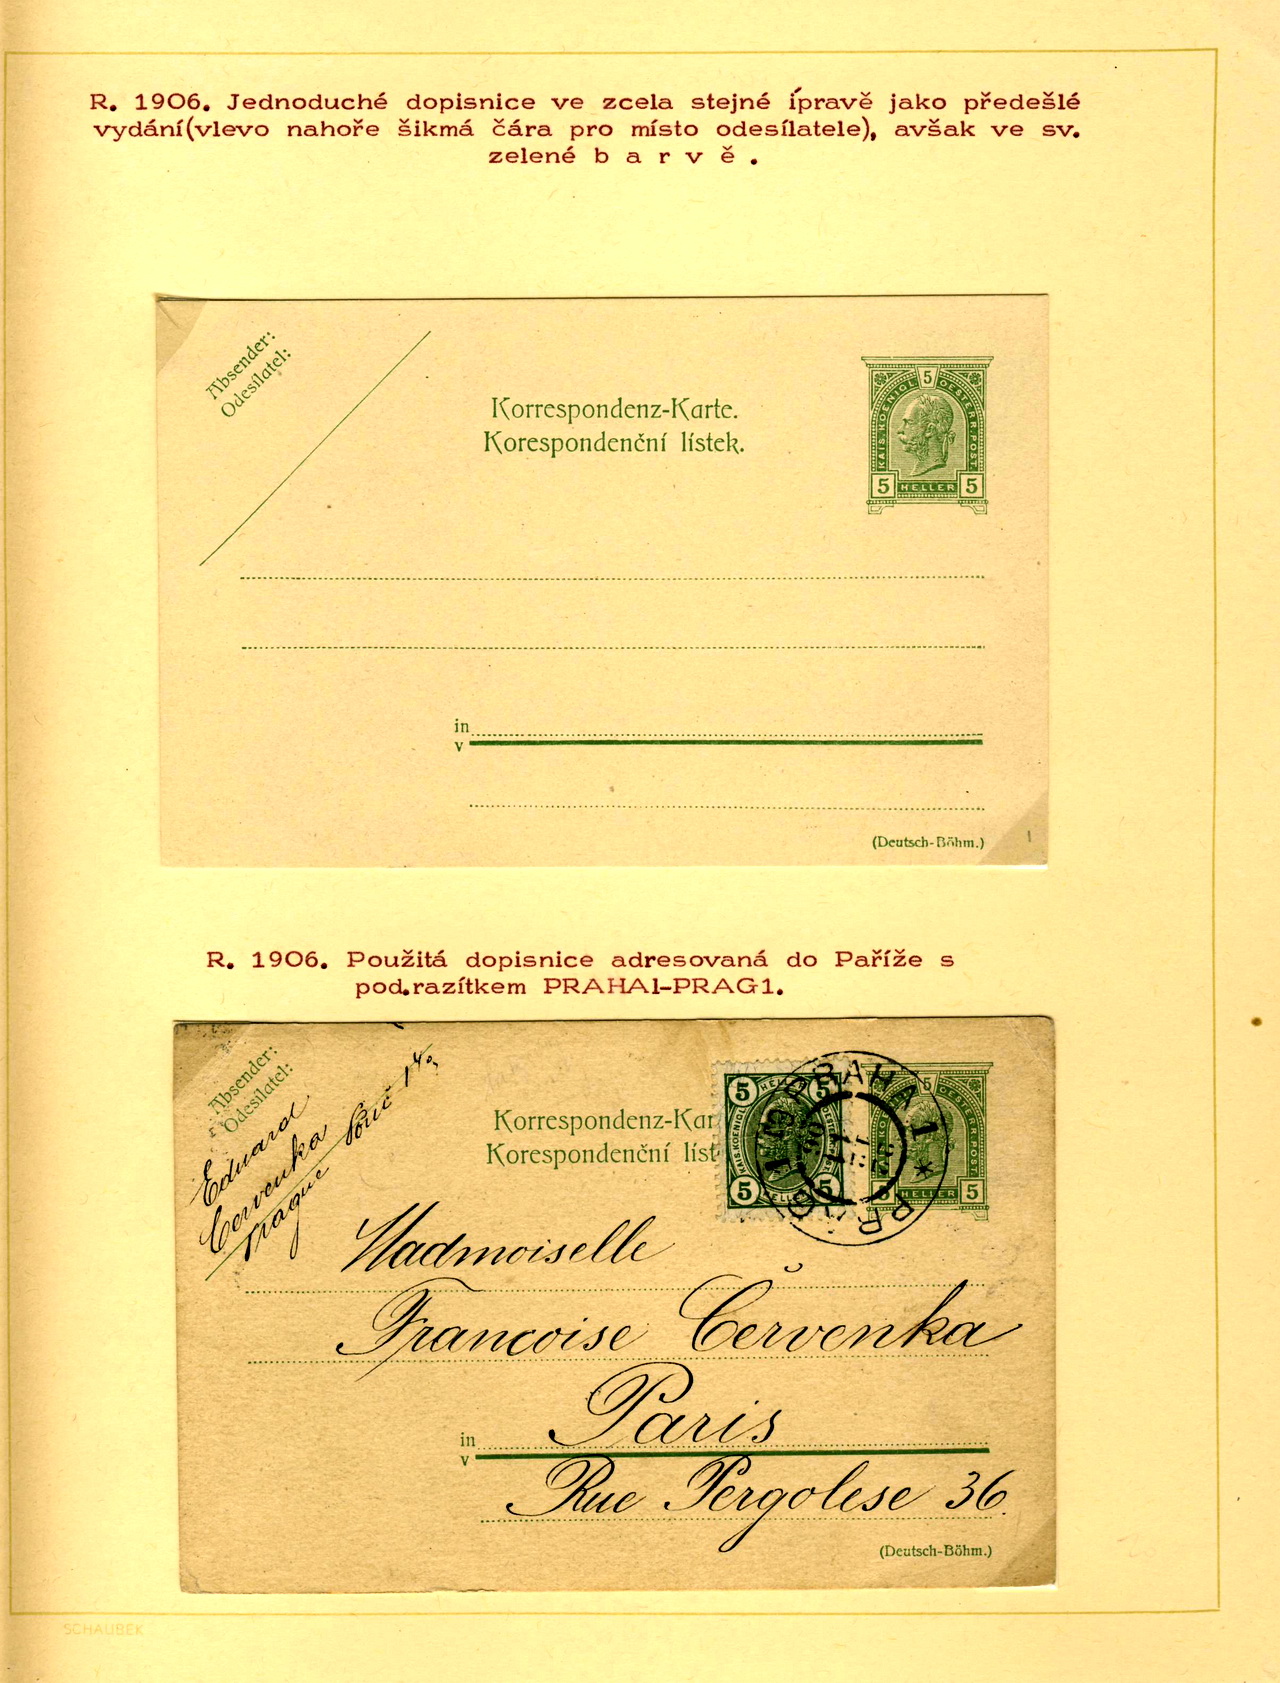 R. 1906. Jednoduché dopisnice ve zcela stejné ípravě jako předešlé
vydání(vlevo nahoře šikmá čára pro místo odesílatele), avšak ve sv.
zelené b a r v ě .
Absender:
Odesílatel:
Korrespondenz-Karte.
Korespondenční lístek.
5
KAIS. KOENIGL. OESTERR. POST.
5 HELLER 5
in
v
(Deutsch-Böhm.)
1
R. 1906. Použitá dopisnice adresovaná do Paříže s
pod.razítkem PRAHA1-PRAG1.
Absender:
Odesílatel:
Eduard
Červenka
Prague
Korrespondenz-Kar
Korespondenční líst
5 HELLER 5
KAIS. KOENIGL.
5 HELLER 5
PRAHA 1
PRAG 1
5
OESTERR. POST.
5 HELLER 5
Madmoiselle
Francoise Červenka
in Paris
v
Rue Pergolese 36.
(Deutsch-Böhm.)
SCHAUBEK